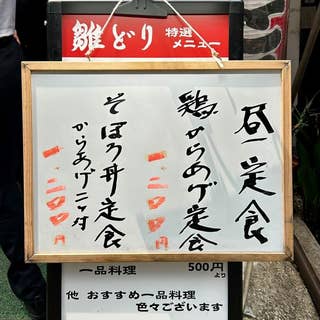 雛どり 特選
メニュー
昼定食
鶏からあげ定食
一、二〇〇円
そぼろ丼定食
からあげ二ヶ付
一、二〇〇円
一品料理 500円より
他 おすすめ一品料理
色々ございます